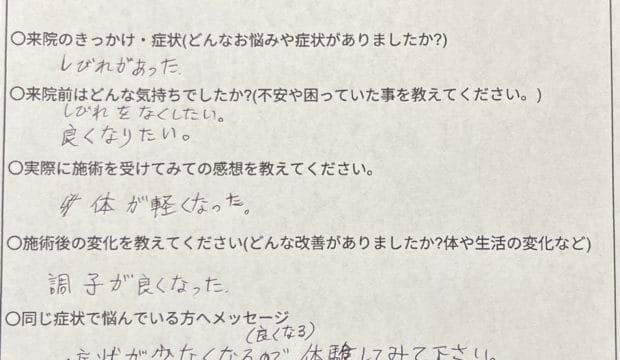 ○来院のきっかけ・症状(どんなお悩みや症状がありましたか?)
しびれがあった.
○来院前はどんな気持ちでしたか?(不安や困っていた事を教えてください。)
しびれをなくしたい。
良くなりたい。
○実際に施術を受けてみての感想を教えてください。
体が軽くなった。
○施術後の変化を教えてください(どんな改善がありましたか?体や生活の変化など)
調子が良くなった.
○同じ症状で悩んでいる方へメッセージ
(良くなる)
症状が少なくなるので体験してみて下さい。